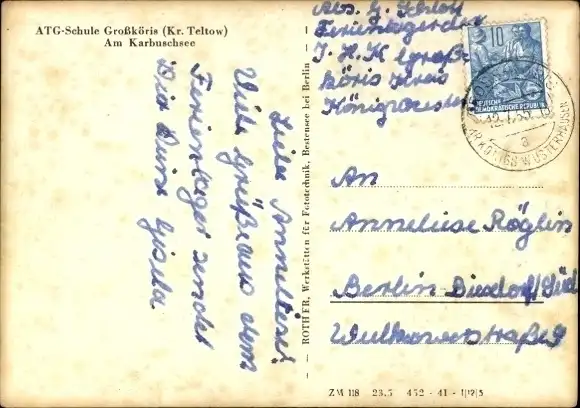 ATG-Schule Großköris (Kr. Teltow)
Am Karbuschsee
Liebe Anneliese!
Viele Grüße aus dem
Ferienlager sendet
Dir Deine Gisela.
ROTHER, Werkstätten für Fototechnik, Bestensee bei Berlin
Abs. G. Scholz
Ferienlager der
I.H.K Groß-
köris Kreis
Königswuster
10
DEUTSCHE
DEMOKRATISCHE REPUBLIK
KÖNIGS WUSTERHAUSEN
a
An
Anneliese Röglin
Berlin Biesdorf/Süd
Wulkowerstraße 9
ZM 118 23.5 452 - 41 - 1|12|5